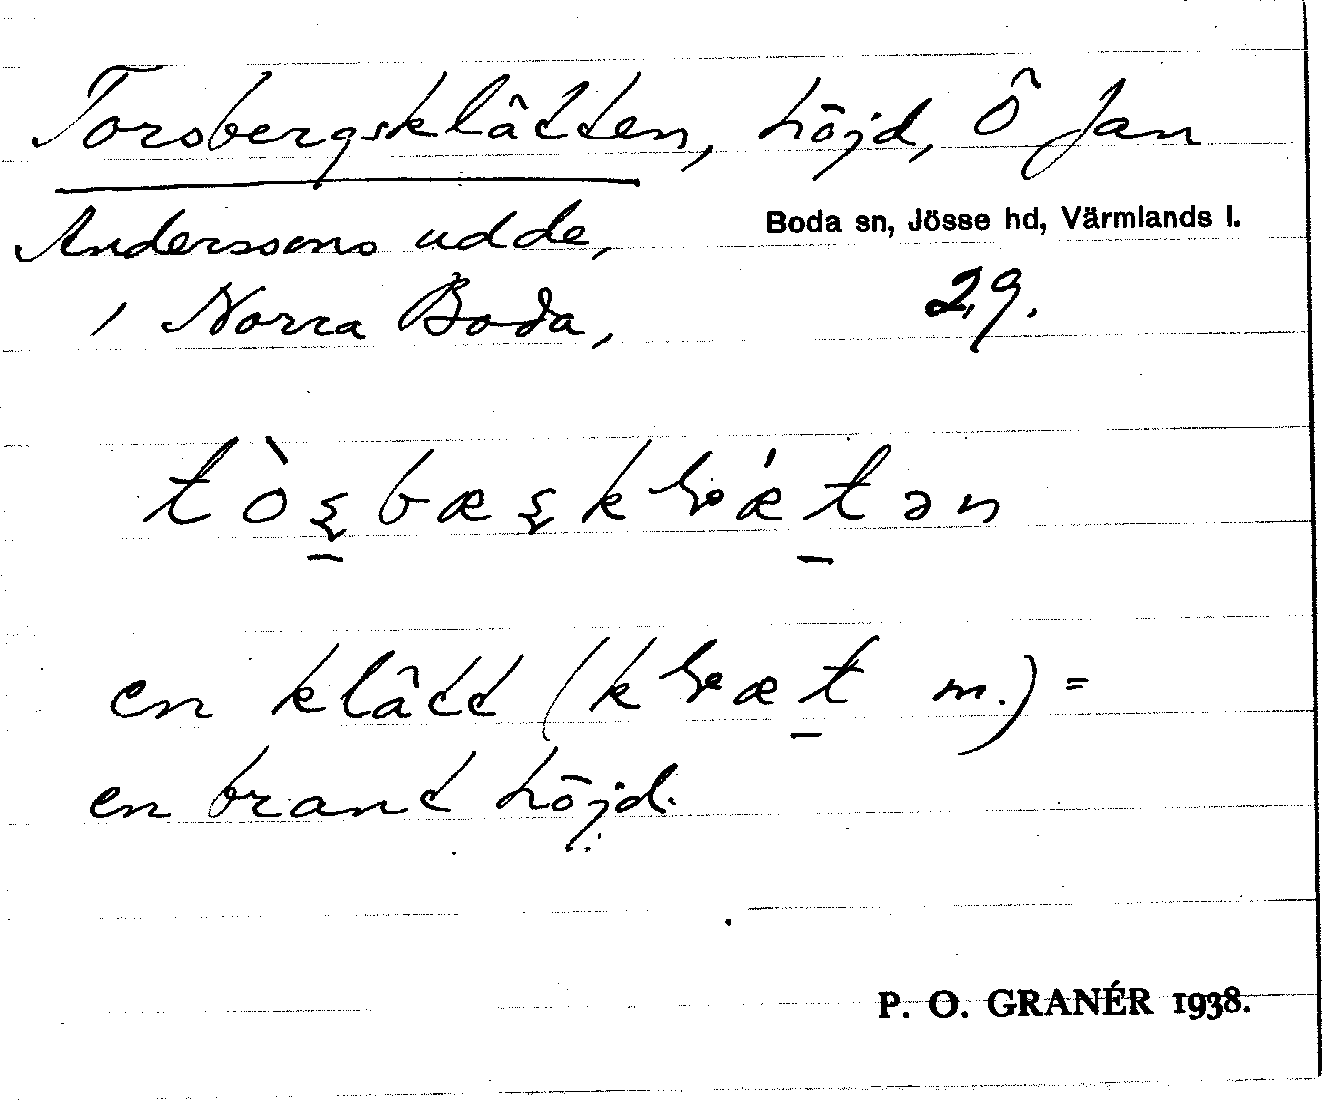 Torsbergsklätten, höjd, Ö Jan
Anderssons udde,
Boda sn, Jösse hd, Värmlands l.
i Norra Boda,
29.
en klätt ( m.) =
en brant höjd.
P. O. GRANÉR 1938.